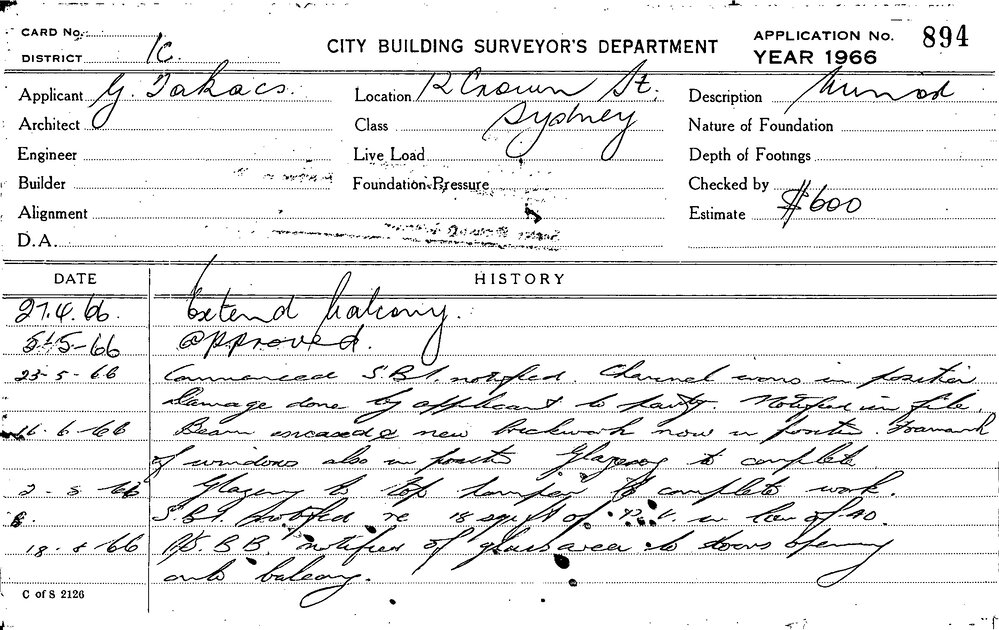 CARD No.
DISTRICT 1C.
CITY BUILDING SURVEYOR'S DEPARTMENT
APPLICATION No. 894
YEAR 1966
Applicant G. Takacs.
Location Crown St.
Sydney
Description Minor
Architect
Class
Nature of Foundation
Engineer
Live Load
Depth of Footings
Builder
Foundation Pressure
Checked by
Alignment
Estimate $600
D.A.
DATE HISTORY
27.4.66. Extend balcony.
5-66 approved.
23-5-66 Commenced S.B.I. notified. Channel irons in position
Damage done by applicant to party. Notified in file.
6-66 Beam encased & new brickwork now in position. Framework
of windows also in position Glazing to complete
2-8-66 Glazing to top hamper to complete work.
S.B.I. notified re 18 sq. ft of in lieu of 40.
18-8-66 notified of glass area to doors opening
onto balcony.
C of S 2126